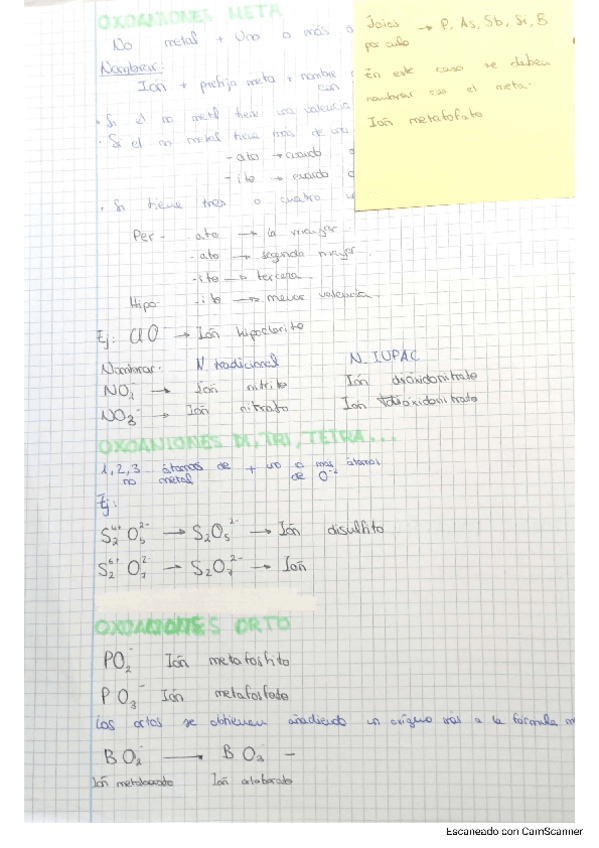 OXOANIONES META
No metal + Uno o más o
Nombrar:
Ión + prefijo meta + nombre
con
· Si el no metal tiene una valencia
· Si el no metal tiene más de una
- ato → cuando
- ito → cuando
· Si tiene tres o cuatro
Per - ato → la mayor
- ato → segunda mayor
- ito → tercera
Hipo - ito → menor valencia.
Ej: ClO⁻ → Ión hipoclorito
Nombrar: N. tradicional N. IUPAC
NO₂⁻ → Ión nitrito Ión dióxidonitrato
NO₃⁻ → Ión nitrato Ión trióxidonitrato
OXOANIONES DI, TRI, TETRA...
1, 2, 3 átomos de + uno o más átomos
no metal de O⁻²
Ej:
S₂⁴⁺ O₅²⁻ → S₂O₅²⁻ → Ión disulfito
S₂⁶⁺ O₇²⁻ → S₂O₇²⁻ → Ión
OXOANIONES ORTO
PO₂⁻ Ión metafosfito
PO₃⁻ Ión metafosfato
Los ortos se obtienen añadiendo un oxígeno más a la fórmula m
BO₂⁻ → BO₃ -
Ión metaborato Ión ortoborato
→ P, As, Sb, Si, B
por culo
En este caso se deben
nombrar con el meta.
Ión metafofato
Escaneado con CamScanner